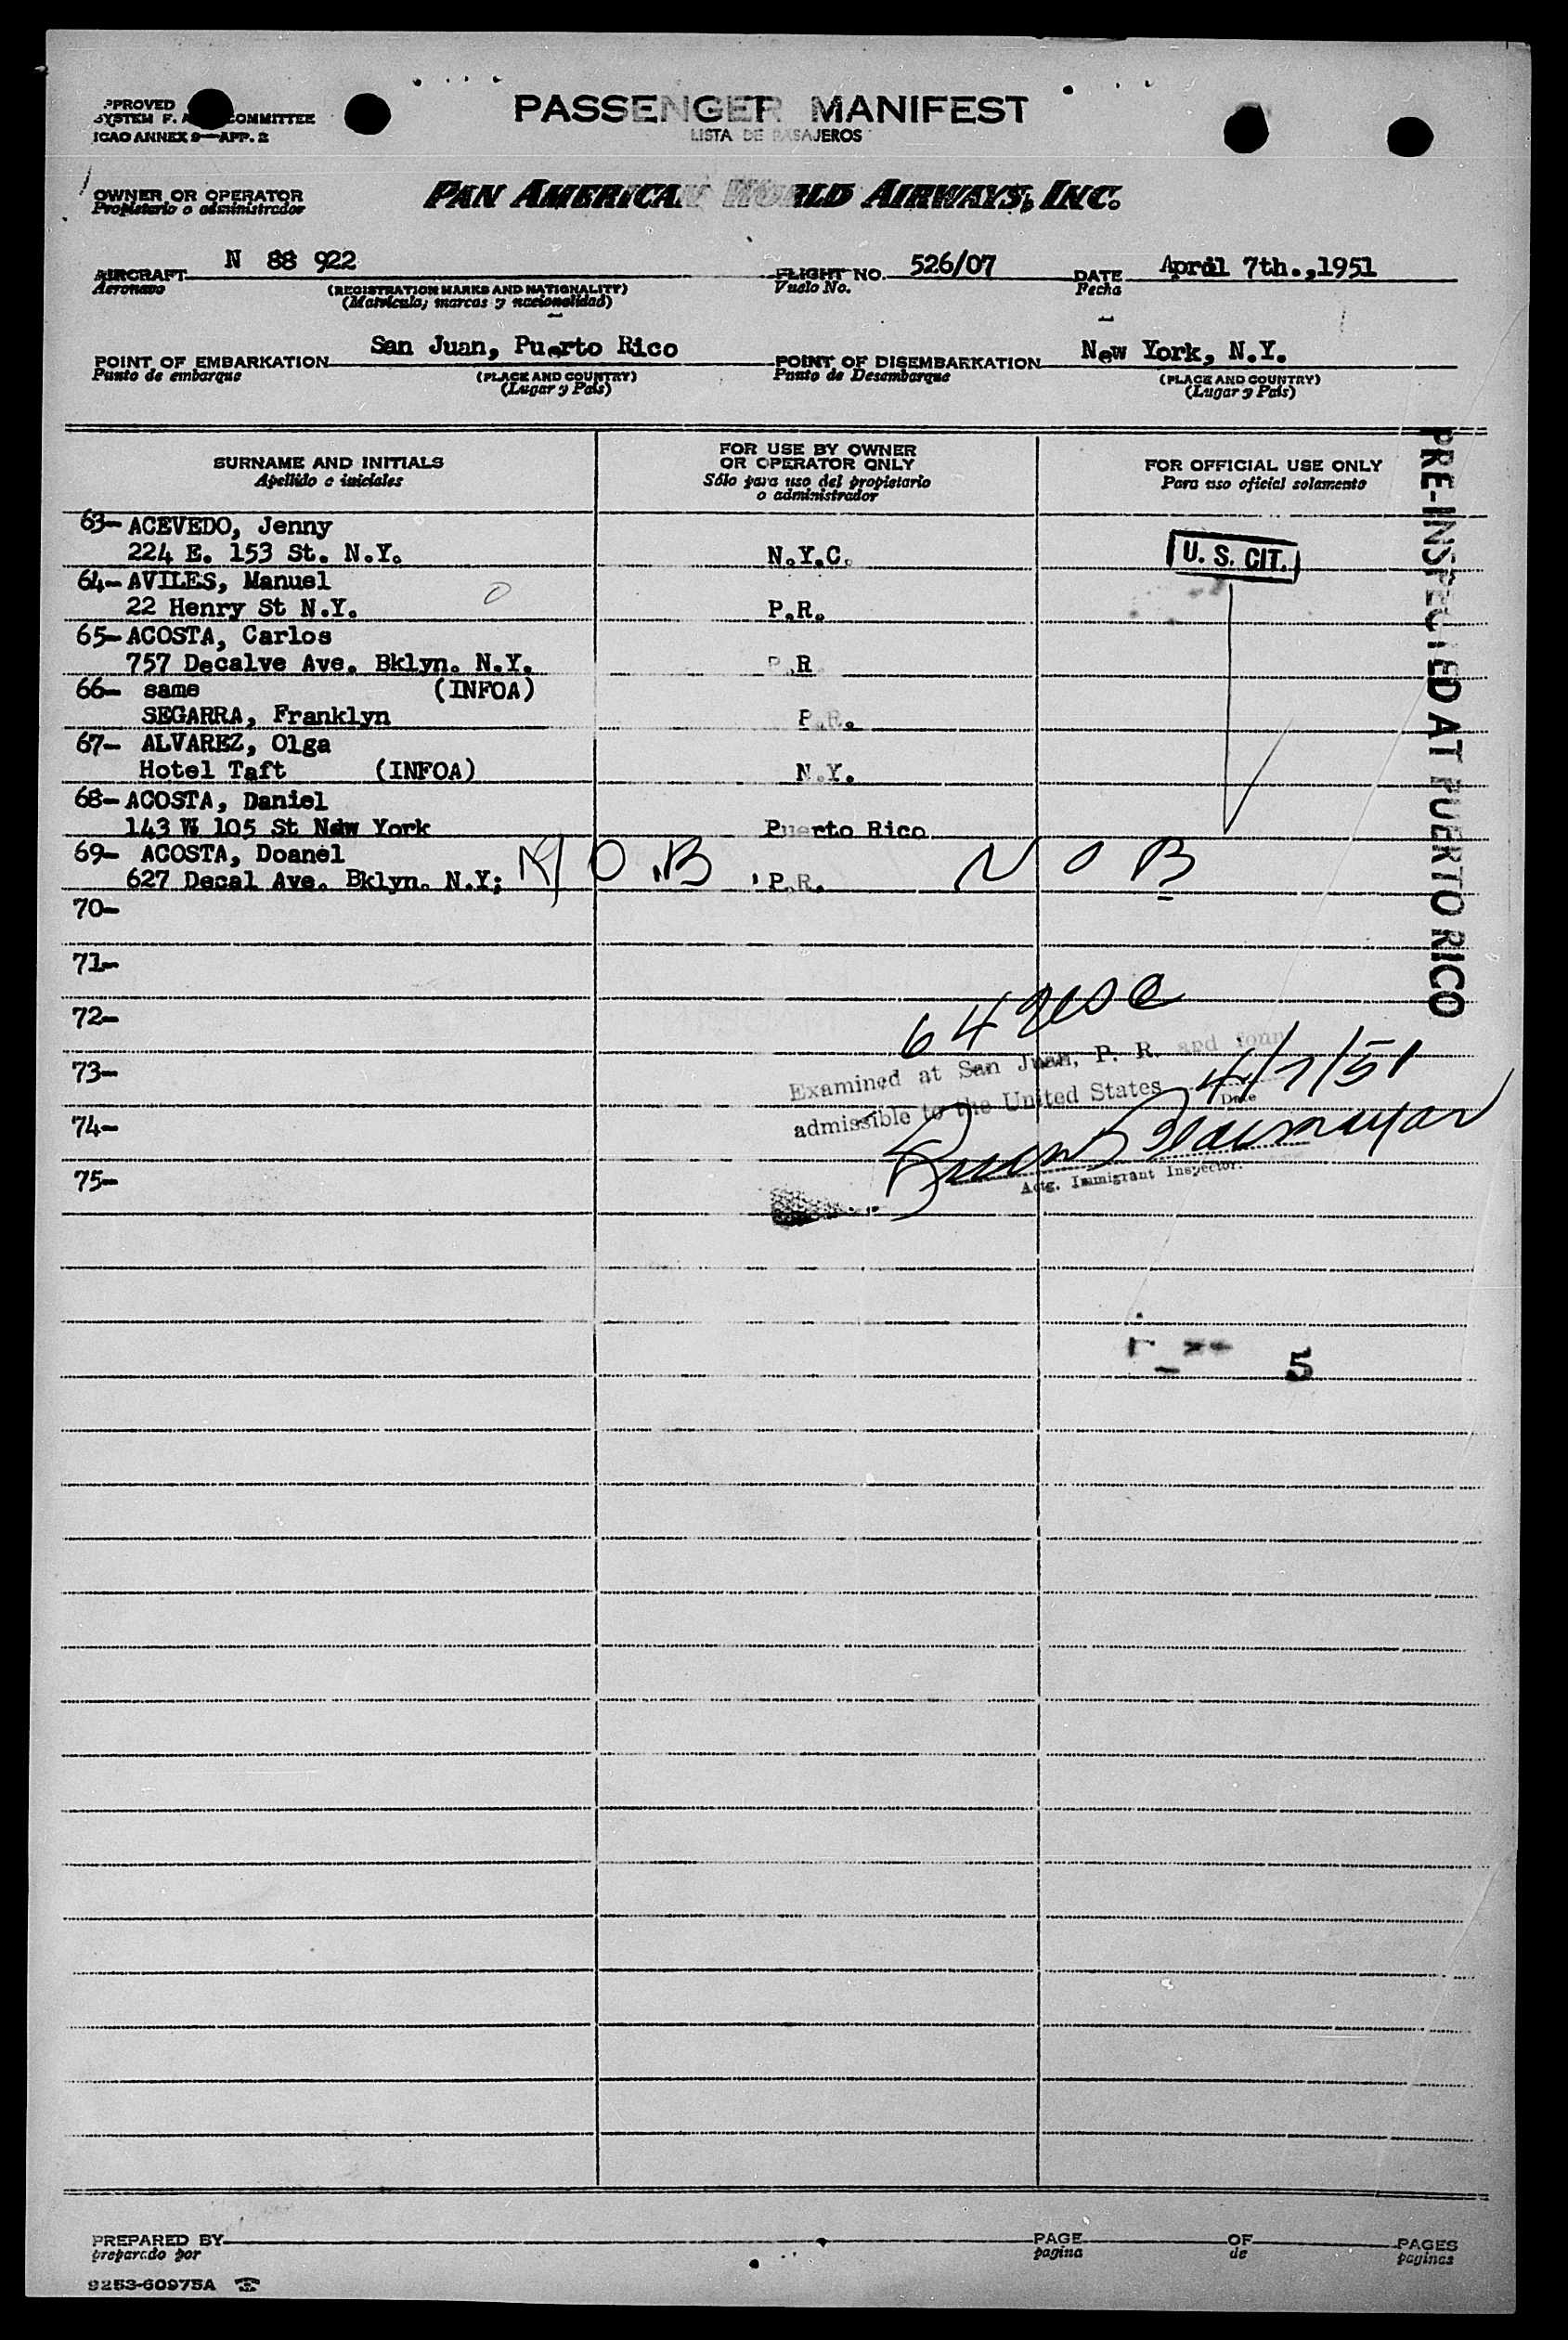 PPROVED
SYSTEM F. A COMMITTEE
ICAO ANNEX 9—APP. 2
PASSENGER MANIFEST
LISTA DE PASAJEROS
OWNER OR OPERATOR
Propietario o administrador
PAN AMERICAN WORLD AIRWAYS, INC.
AIRCRAFT N 88 922
Aeronave
(REGISTRATION MARKS AND NATIONALITY)
(Matricula, marcas y nacionalidad)
FLIGHT NO. 526/07
Vuelo No.
DATE April 7th.,1951
Fecha
POINT OF EMBARKATION San Juan, Puerto Rico
Punto de embarque
(PLACE AND COUNTRY)
(Lugar y País)
POINT OF DISEMBARKATION New York, N.Y.
Punto de Desembarque
(PLACE AND COUNTRY)
(Lugar y País)
SURNAME AND INITIALS
Apellido e iniciales
FOR USE BY OWNER
OR OPERATOR ONLY
Sólo para uso del propietario
o administrador
FOR OFFICIAL USE ONLY
Para uso oficial solamente
63- ACEVEDO, Jenny
224 E. 153 St. N.Y. N.Y.C. U. S. CIT.
64- AVILES, Manuel
22 Henry St N.Y. P.R.
65- ACOSTA, Carlos
757 Decalve Ave. Bklyn. N.Y. P.R
66- same (INFOA)
SEGARRA, Franklyn P.R.
67- ALVAREZ, Olga
Hotel Taft (INFOA) N.Y.
68- ACOSTA, Daniel
143 W 105 St New York Puerto Rico
69- ACOSTA, Doanel N O.B N O B
627 Decal Ave. Bklyn. N.Y; P.R.
70-
71-
72-
73-
74-
75-
PRE-INSPECTED AT PUERTO RICO
64
Examined at San Juan, P. R. and foun
admissible to the United States 4/7/51
Date
Actg. Immigrant Inspector.
5
PREPARED BY
preparado por
PAGE
pagina
OF
de
PAGES
paginas
9253-60975A